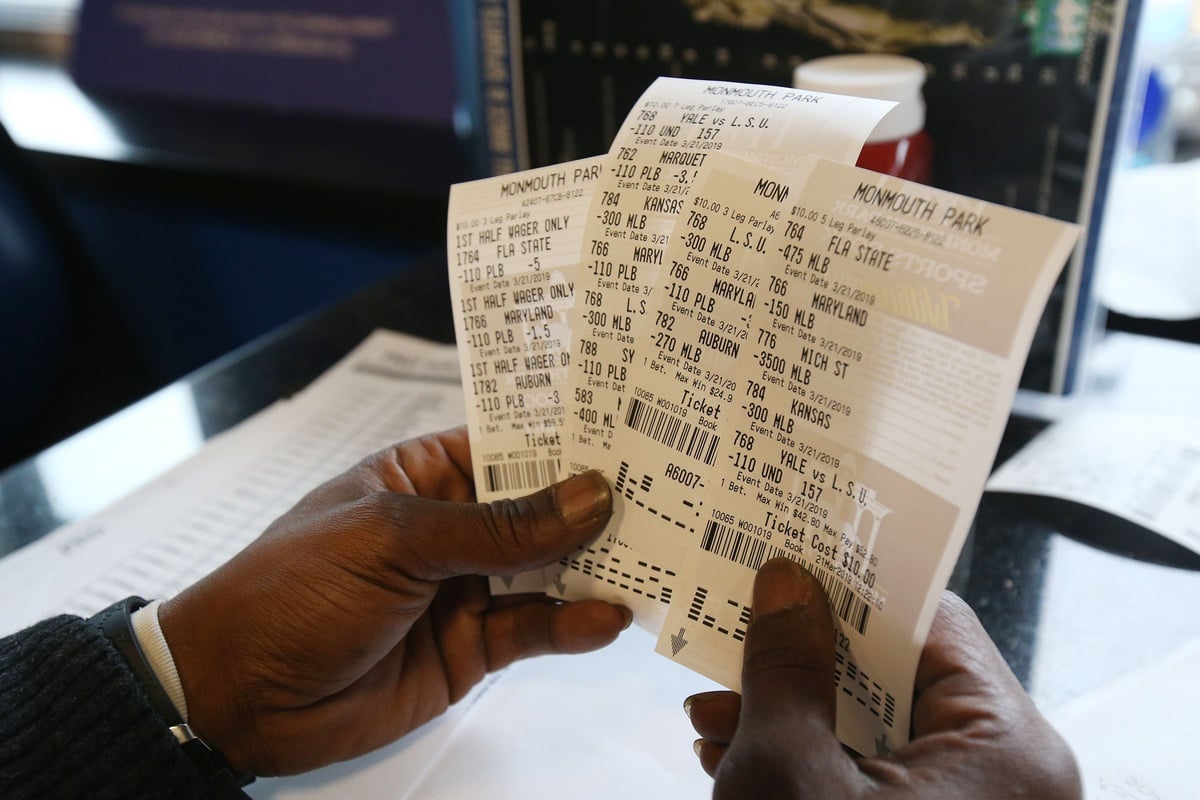 MONMOUTH PAR
A2407-67CB-8122
$10.00 3 Leg Parlay
1ST HALF WAGER ONLY
1764 FLA STATE
-110 PLB -5
Event Date 3/21/2019
1ST HALF WAGER ONLY
1766 MARYLAND
-110 PLB -1.5
Event Date 3/21/2019
1ST HALF WAGER ON
1782 AUBURN
-110 PLB -3
Event Date 3/21/201
1 Bet. Max Win $59.5
Ticket
10065 W001019 Book
MONMOUTH PARK
$10.00 7 Leg Parlay
768 YALE vs L.S.U.
-110 UND 157
Event Date 3/21/2019
762 MARQUET
-110 PLB -3.
Event Date 3/21/2
784 KANSAS
-300 MLB
Event Date 3/21
766 MARYL
-110 PLB
Event Date 3/21
768 L.S
-300 MLB
Event Date 3/
788 SY
-110 PLB
Event Dat
583
-400 ML
Event D
1 Bet. Ma
10065
MONM
A6
$10.00 3 Leg Parlay
768 L.S.U.
-300 MLB
Event Date 3/21/
766 MARYLA
-110 PLB
Event Date 3/21/2
782 AUBURN
-270 MLB
Event Date 3/21/20
1 Bet. Max Win $24.9
Ticket
10065 W001019 Book
A6007-
MONMOUTH PARK
$10.00 5 Leg Parlay
764 FLA STATE
-475 MLB
Event Date 3/21/2019
766 MARYLAND
-150 MLB
Event Date 3/21/2019
776 MICH ST
-3500 MLB
Event Date 3/21/2019
784 KANSAS
-300 MLB
Event Date 3/21/2019
768 YALE vs L.S.U.
-110 UND 157
Event Date 3/21/2019
1 Bet. Max Win $42.80 Max Pay $52.80
Ticket Cost $10.00
10065 W001019 Book 21Mar2019 12:22:10
122